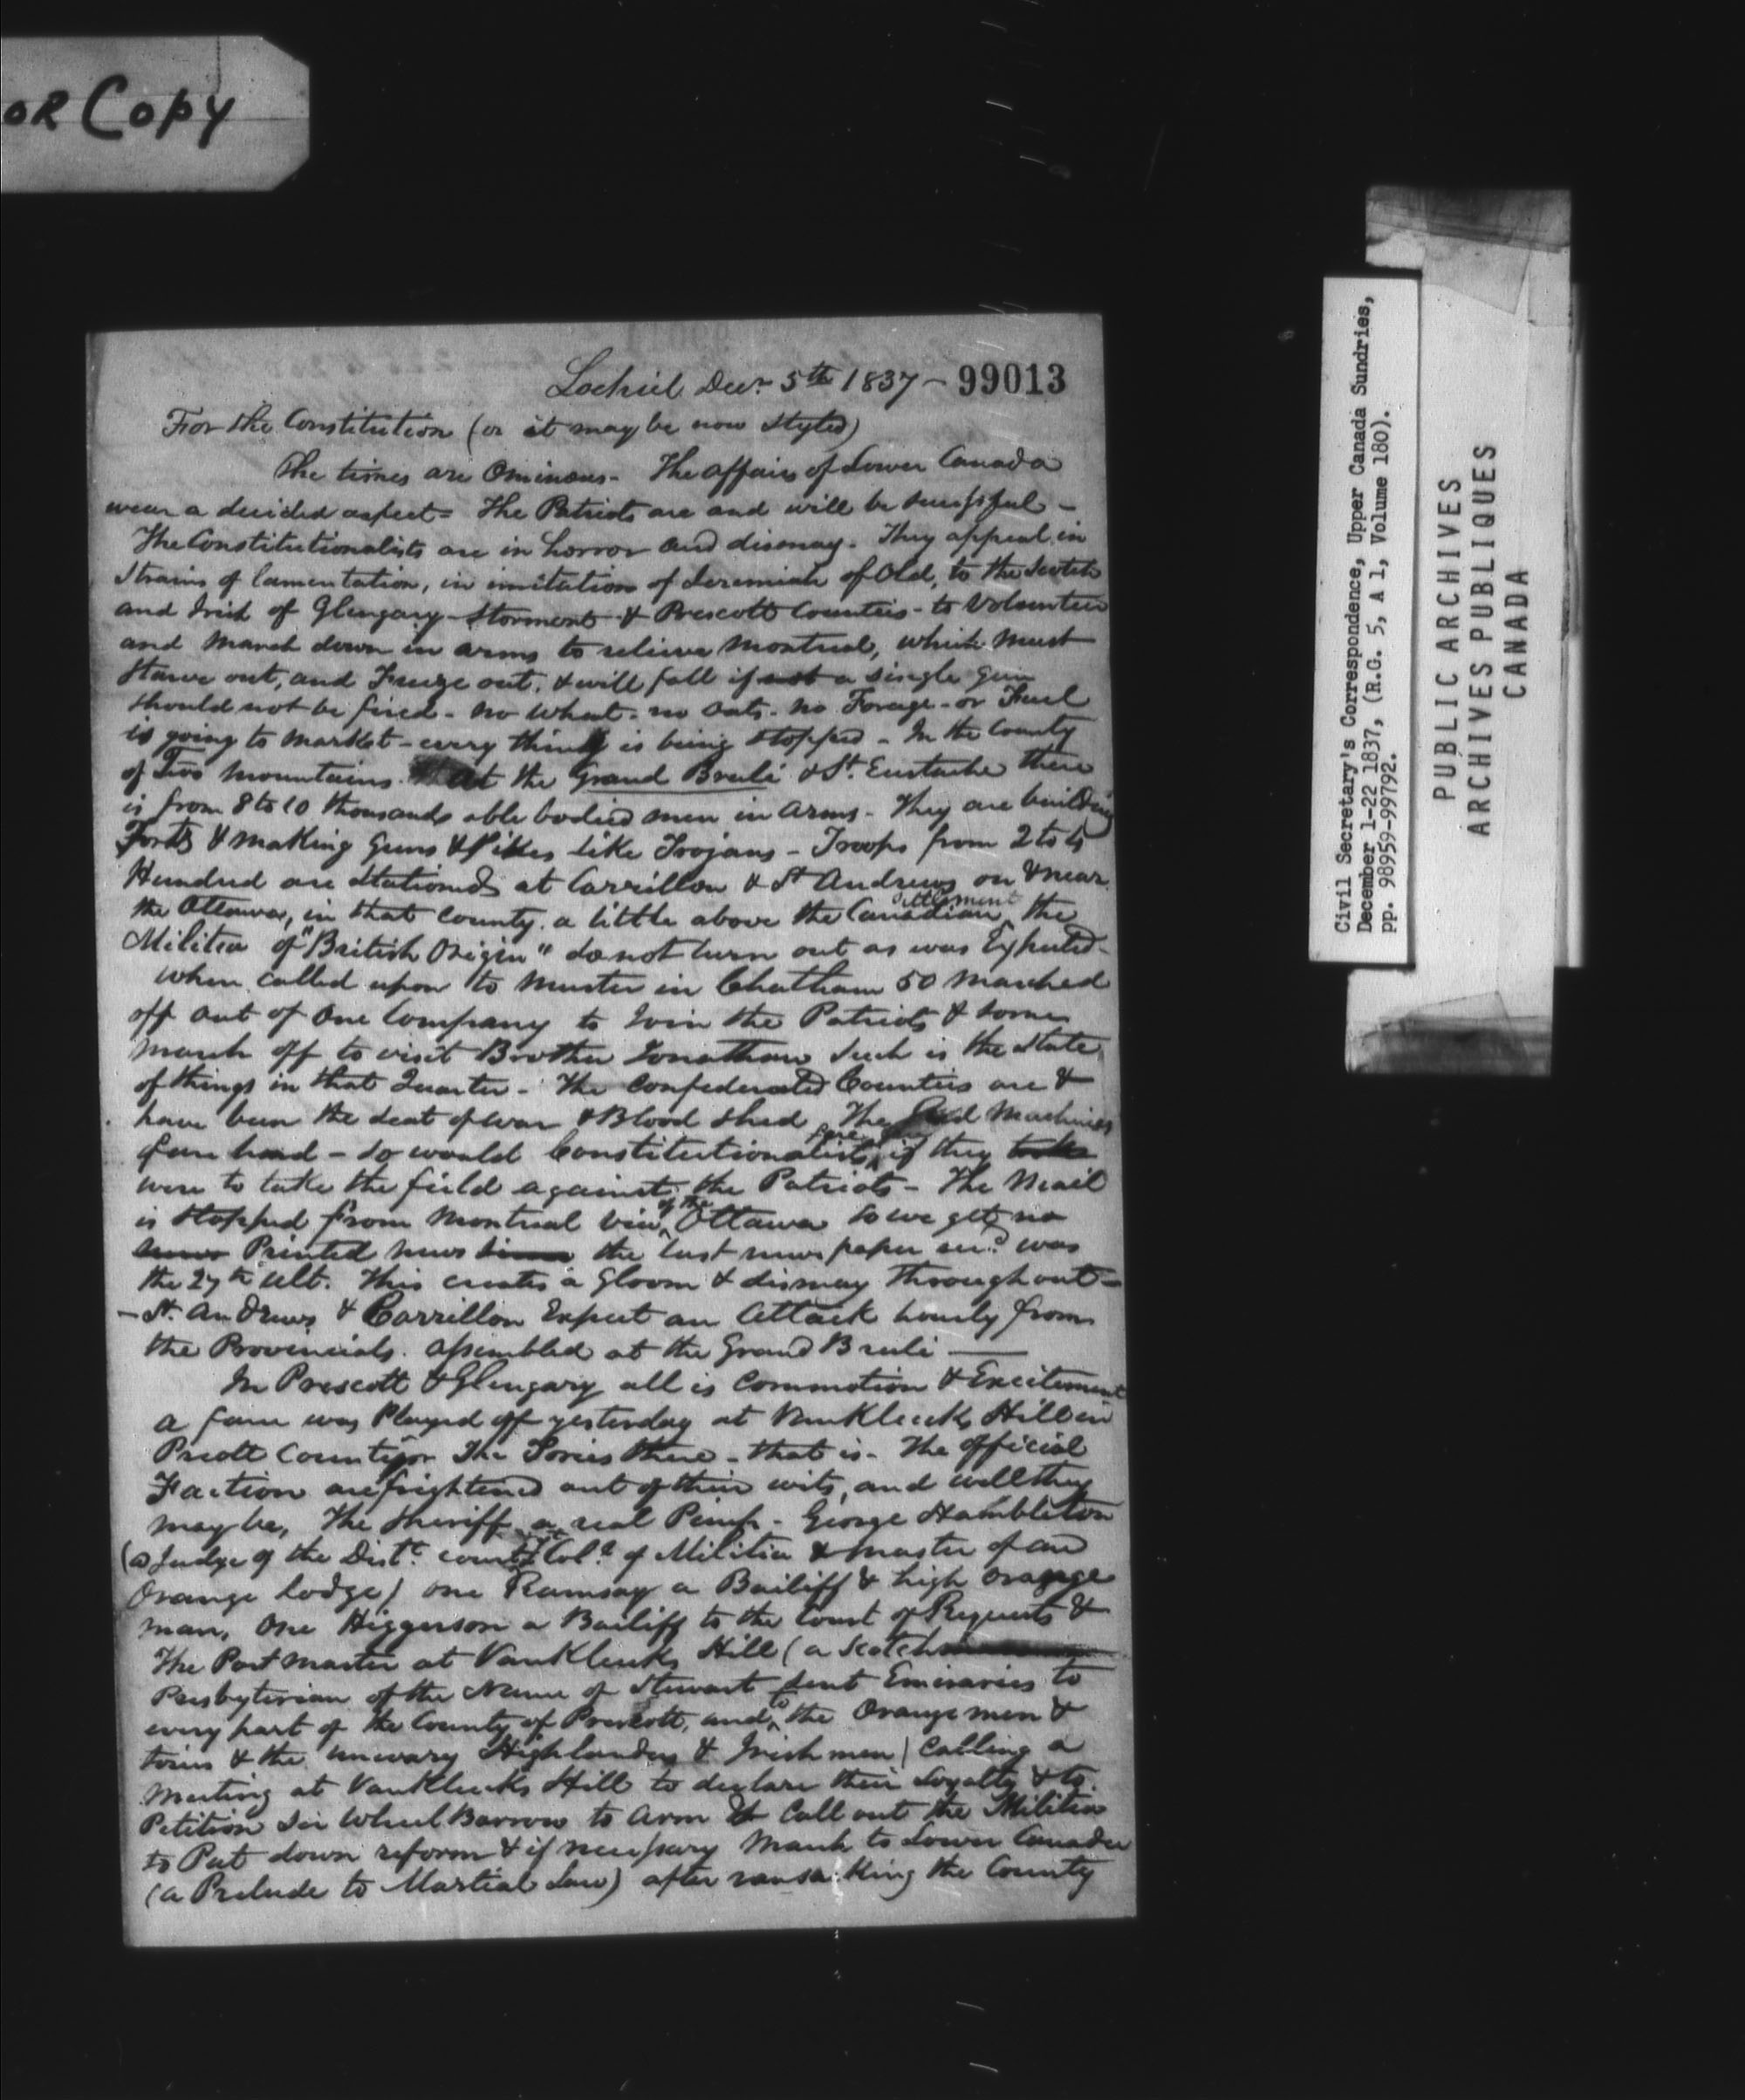 OR Copy
Lochiel Decr. 5th 1837 - 99013
For the Constitution (or it may be now Styled)
The times are Ominous - The affairs of Lower Canada
wear a decided aspect = The Patriots are and will be sucessful -
The Constitutionalists are in horror and dismay. They appeal in
strains of lamentation, in imitation of Jeremiah of Old, to the Scotch
and Irish of Glengary - Stormont & Prescott Counties - to Volunteer
and March down in arms to relieve Montreal, which must
Starve out, and Freeze out, & will fall if not a single gun
should not be fired - no Wheat - no Oats - no Forage - or Fuel
is going to Market - every thing is being stopped - In the County
of Two Mountains At the Grand Brulé & St. Eustache there
is from 8 to 10 thousands able bodied men in arms - They are building
Forts & making Guns & Pikes like Trojans - Troops from 2 to 4
Hundred are stationed at Carrillon & St Andrews on & near
the Ottawa, in that County, a little above the Canadian settlement the
Militia of "British Origin" do not turn out as was Expected -
when called upon to Muster in Chatham 50 marched
off out of One Company to Join the Patriots & some
march off to visit Brother Jonathan Such is the state
of things in that Quarter - The Confederated Counties are &
have been the Seat of War & Blood Shed The Machines
fare hard - so would Constitutionalists fare if they took
were to take the field against the Patriots - The Mail
is stopped from Montreal via of the Ottawa so we get no
news Printed news since the last news paper recd was
the 27th Ult. This creates a gloom & dismay throughout -
- St. Andrews & Carrillon Expect an Attack hourly from
the Provincials assembled at the Grand Brulé -
In Prescott & Glengary all is Commotion & Excitement
a farce was Played off yesterday at Vankleeks Hill in
Prcott County for The Tories there - that is - The official
Faction are frightened out of their wits, and well they
may be, The Sheriff a real Pimp - George Hambleton
(a Judge of the Distc. court Lt Col. of Militia & master of an
Orange lodge) one Ramsay a Bailiff & high orange
man, One Higgerson a Bailiff to the Court of Requests &
The Post Master at Vankleeks Hill (a Scotch
Presbyterian of the Name of Stewart sent Emisaries to
every part of the County of Prescott, and to the Orange men &
tories & the unwary Highlanders & Irish men) Calling a
Meeting at Vankleeks Hill to declare their Loyalty & to
Petition Sir Wheel Barrow to Arm & Call out the Militia
to Put down reform & if necessary March to Lower Canada
(a Prelude to Martial Law) after ransacking the County
Civil Secretary's Correspondence, Upper Canada Sundries,
December 1-22 1837, (R.G. 5, A 1, Volume 180).
pp. 98959-99792.
PUBLIC ARCHIVES
ARCHIVES PUBLIQUES
CANADA